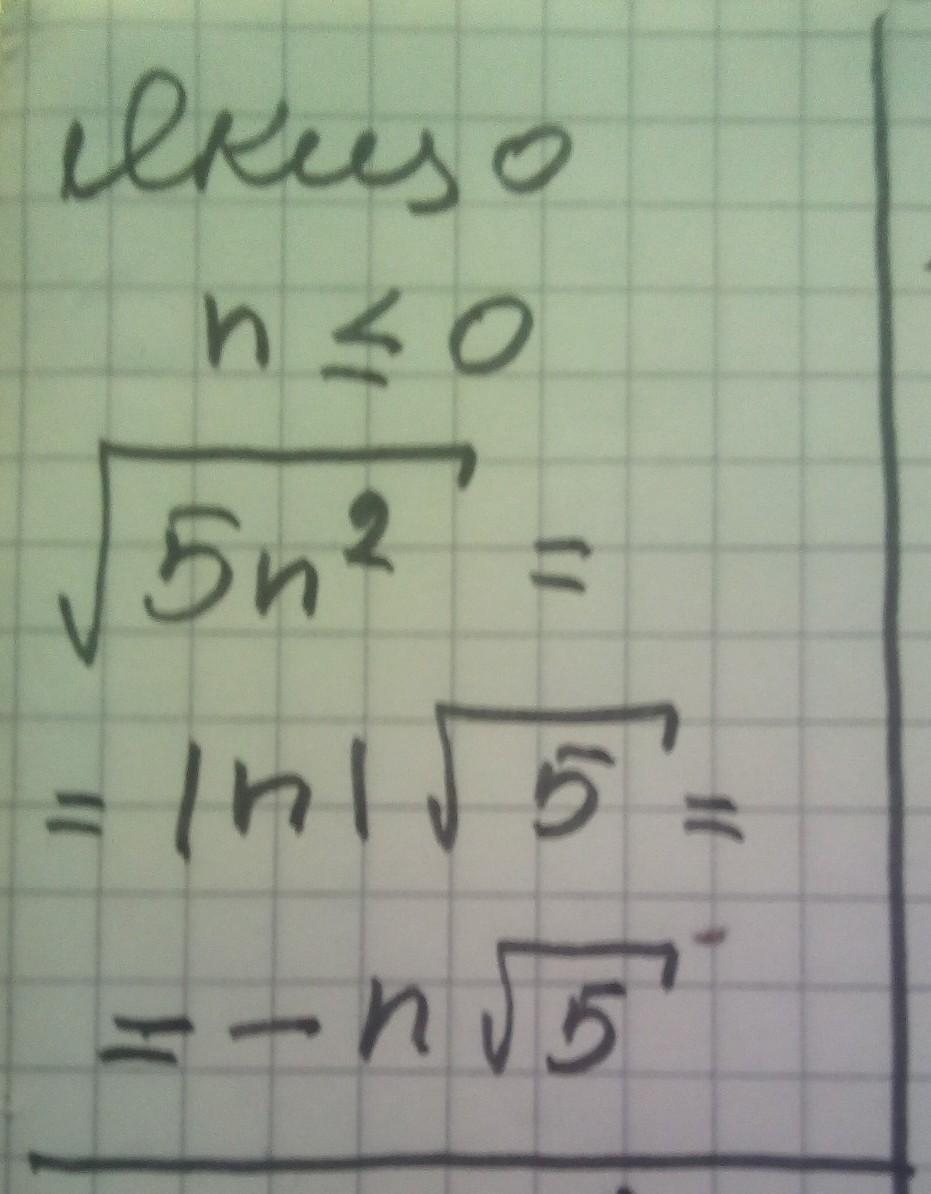 якщо
n ≤ 0
√5n² =
= |n|√5 =
= - n√5